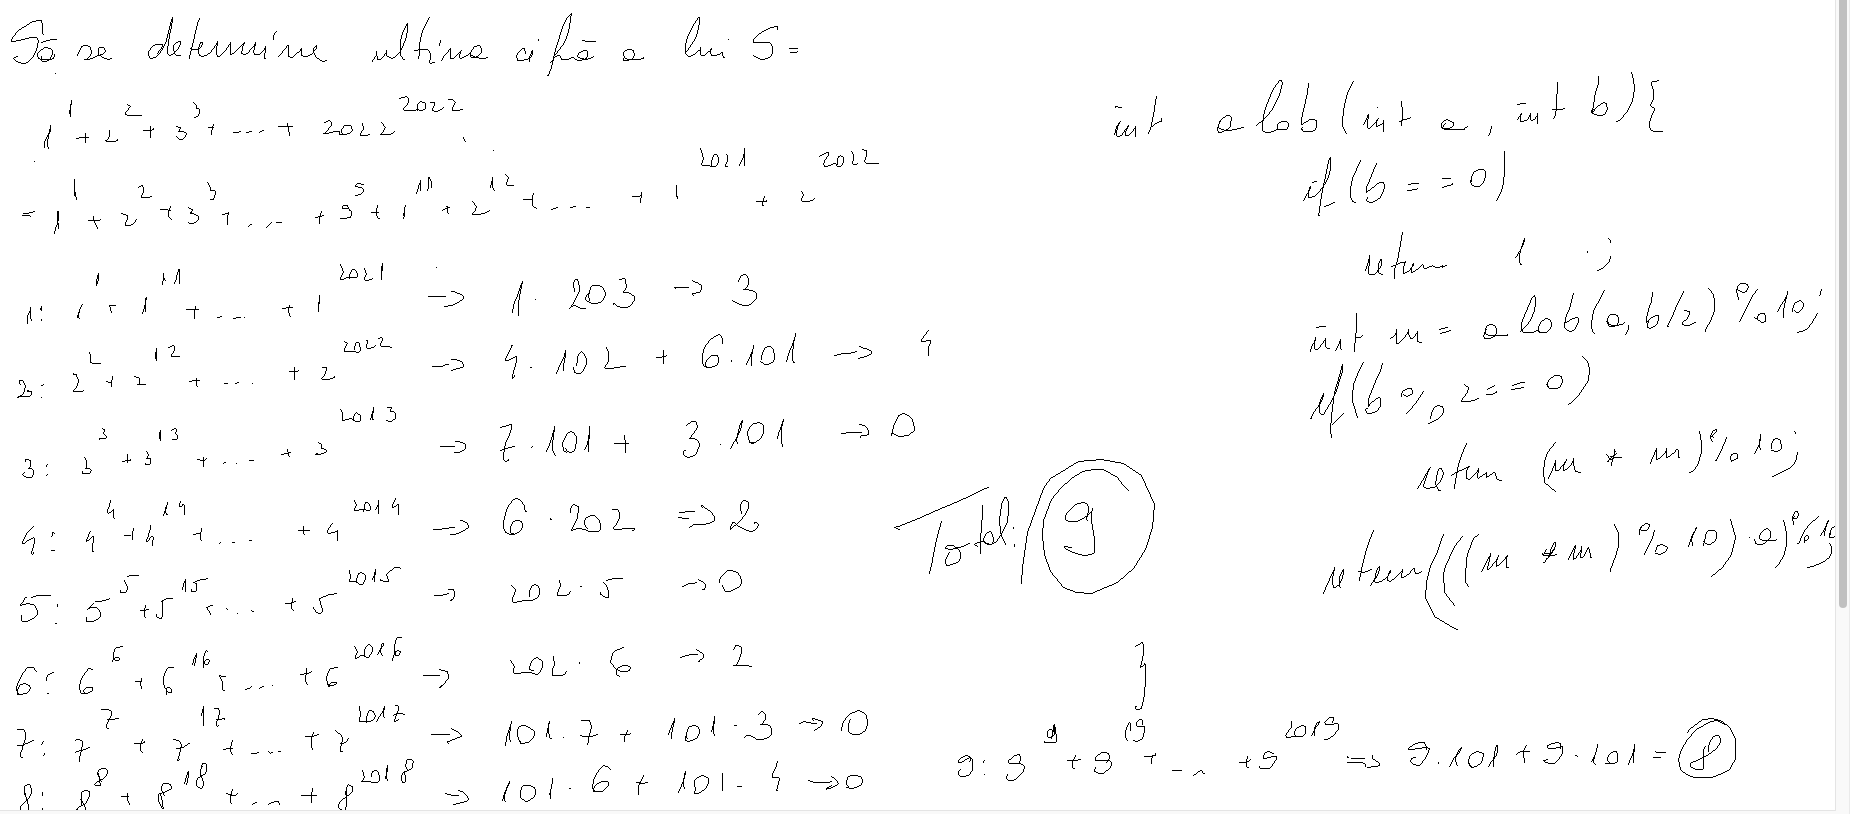 Să se determine ultima cifră a lui S =
1^1 + 2^2 + 3^3 + .... + 2022^2022
= 1^1 + 2^2 + 3^3 + .... + 9^9 + 1^11 + 2^12 + .... + 1^2021 + 2^2022
1: 1^1 + 1^11 + .... + 1^2021 -> 1 · 203 -> 3
2: 2^2 + 2^12 + .... + 2^2022 -> 4 · 102 + 6 · 101 -> 4
3: 3^3 + 3^13 + .... + 3^2013 -> 7 · 101 + 3 · 101 -> 0
4: 4^4 + 4^14 + .... + 4^2014 -> 6 · 202 => 2
5: 5^5 + 5^15 + .... + 5^2015 -> 202 · 5 -> 0
6: 6^6 + 6^16 + .... + 6^2016 -> 202 · 6 -> 2
7: 7^7 + 7^17 + .... + 7^2017 -> 101 · 7 + 101 · 3 -> 0
8: 8^8 + 8^18 + .... + 8^2018 -> 101 · 6 + 101 · 4 -> 0
9: 9^9 + 9^19 + .... + 9^2019 => 9 · 101 + 9 · 101 = 8
Total: 9
int a la b (int a, int b) {
if (b == 0)
return 1 ;
int m = a la b (a, b/2) % 10;
if (b % 2 == 0)
return (m * m) % 10;
return (((m * m) % 10) · a) % 10;
}